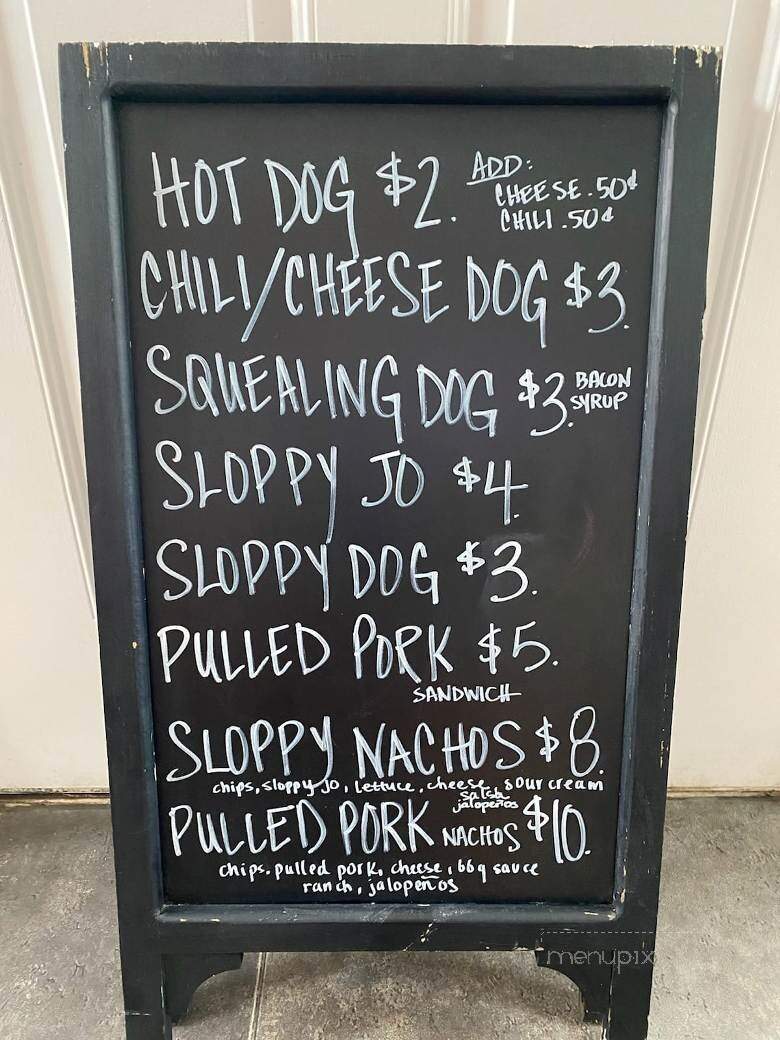 HOT DOG $2. ADD:
CHEESE .50¢
CHILI .50¢
CHILI/CHEESE DOG $3.
SQUEALING DOG $3. BACON
SYRUP
SLOPPY JO $4.
SLOPPY DOG $3.
PULLED PORK $5.
SANDWICH
SLOPPY NACHOS $8.
chips, sloppy Jo, lettuce, cheese, sour cream
salsa
jalopeños
PULLED PORK NACHOS $10.
chips, pulled pork, cheese, bbq sauce
ranch, jalopeños
menupix